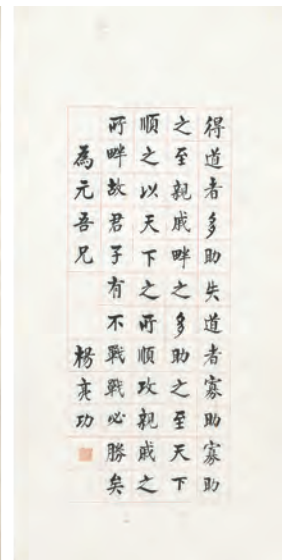 得道者多助失道者寡助寡助
之至親戚畔之多助之至天下
順之以天下之所順攻親戚之
所畔故君子有不戰戰必勝矣
為元吾兄 楊亮功